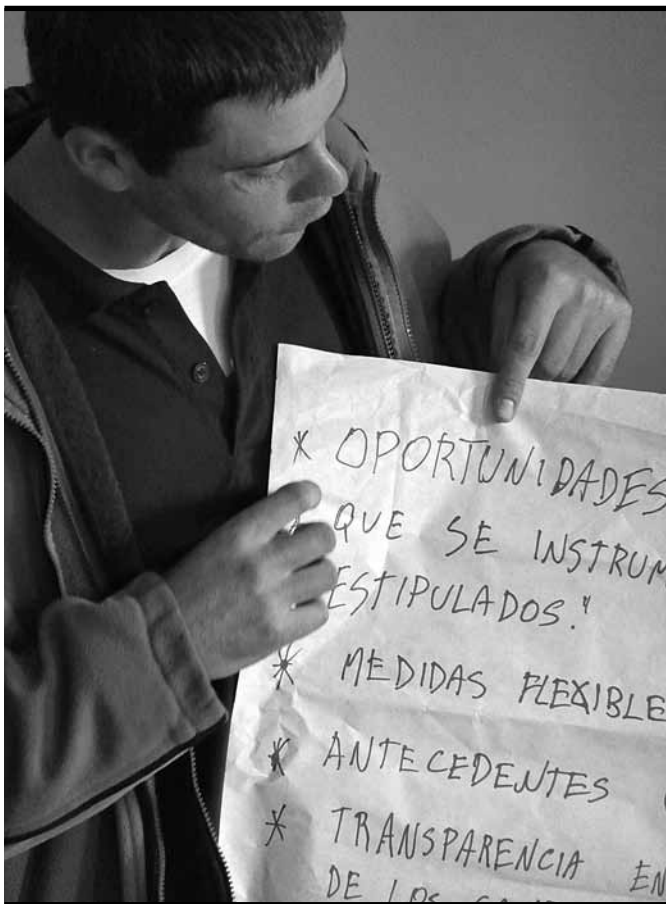 * OPORTUNIDADES
QUE SE INSTRUM
ESTIPULADOS."
* MEDIDAS FLEXIBLE
* ANTECEDENTES
* TRANSPARENCIA EN
DE LOS